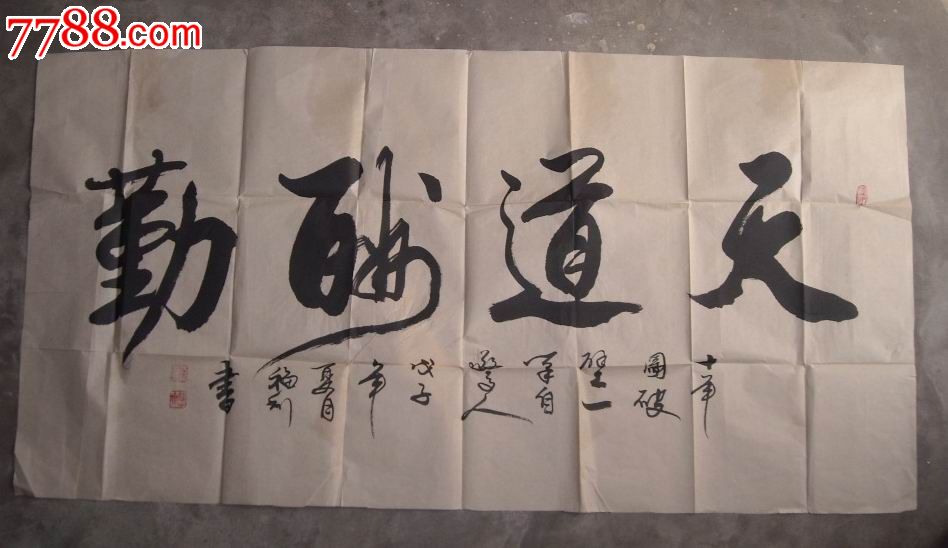 7788.com
天道酬勤
十年
圖破
壁一
筆自
驚人
戊子
年
夏月
福
書